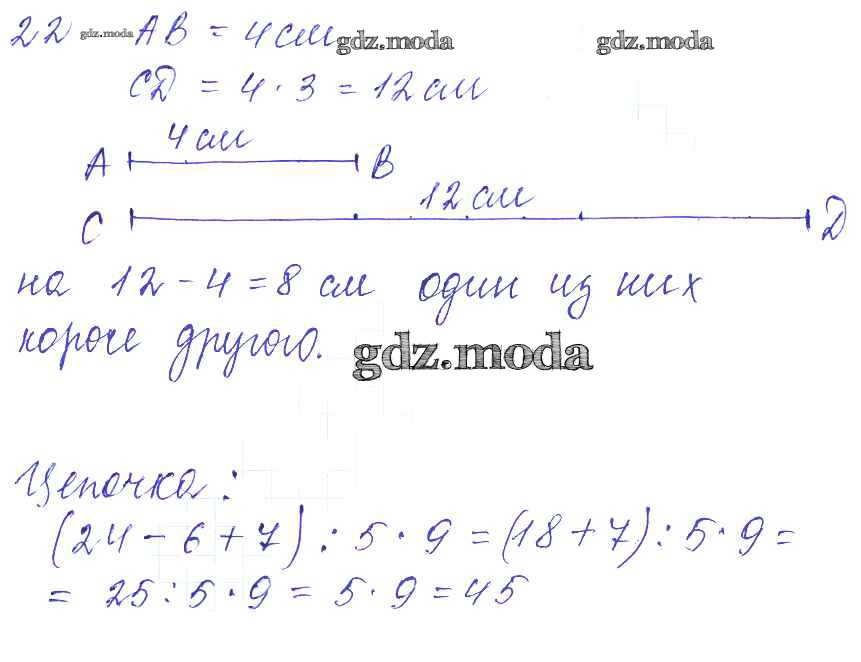 22 gdz.moda AB = 4 см gdz.moda gdz.moda
CD = 4 · 3 = 12 см
4 см
A B
12 см
C D
на 12 - 4 = 8 см один из них
короче другого. gdz.moda
Цепочка:
(24 - 6 + 7) : 5 · 9 = (18 + 7) : 5 · 9 =
= 25 : 5 · 9 = 5 · 9 = 45